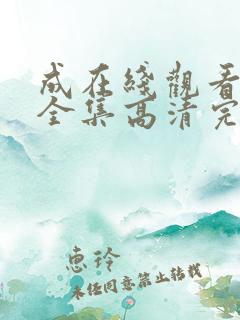 成在綫觀看
全集高清完
惠玲
未经同意禁止转载